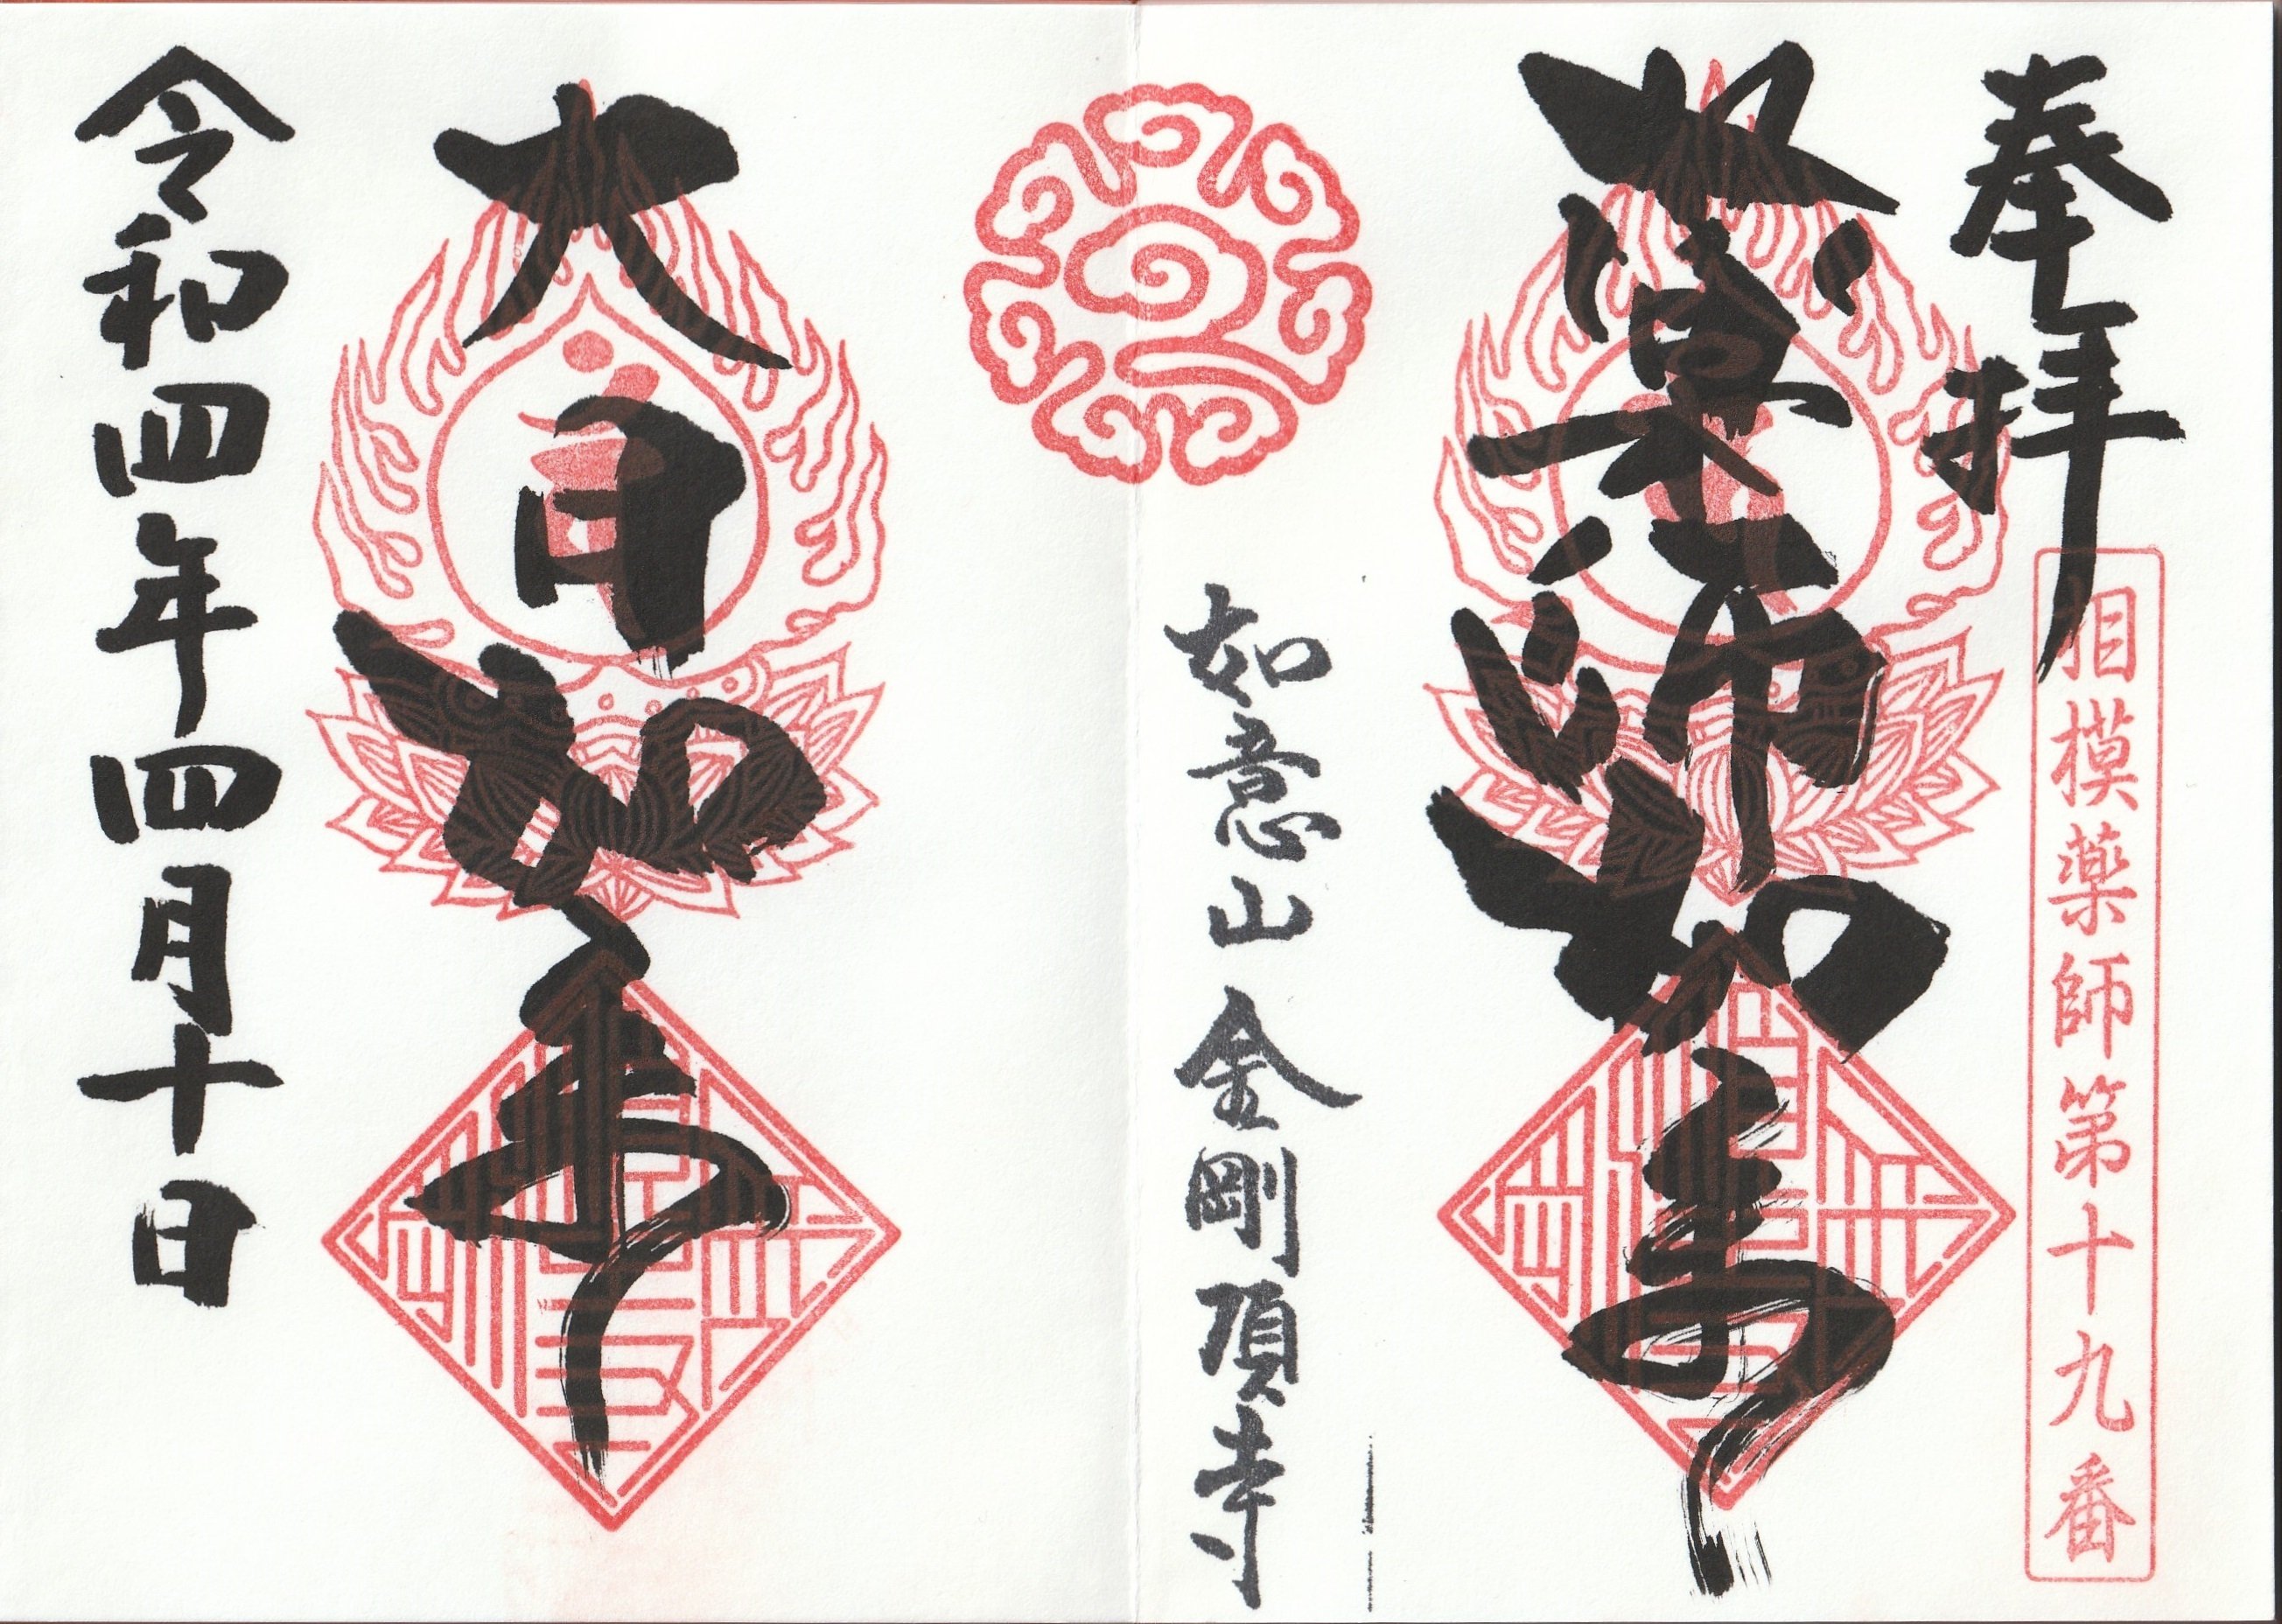 奉拝
相模薬師第十九番
薬師如来
如意山 金剛頂寺
大日如来
令和四年四月十日